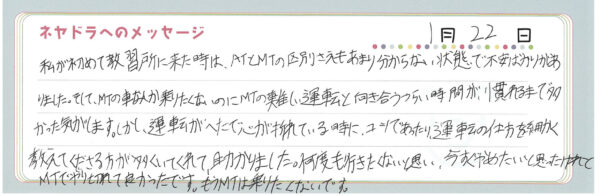 ネヤドラへのメッセージ
1月22日
私が初めて教習所に来た時は、ATとMTの区別さえもあまり分からない状態で不安ばかりがあ
りました。そして、MTの車なんか乗りたくないのにMTの難しい運転と向き合うつらい時間が慣れるまで多
かった気がします。しかし、運転がへたで心が折れている時に、コツであったり、運転の仕方を細かく
教えてくださる方が多くいてくれて助かりました。何度も行きたくないと思い、今すぐやめたいと思ったけれど
MTでやり切れて良かったです。もうMTは乗りたくないです。